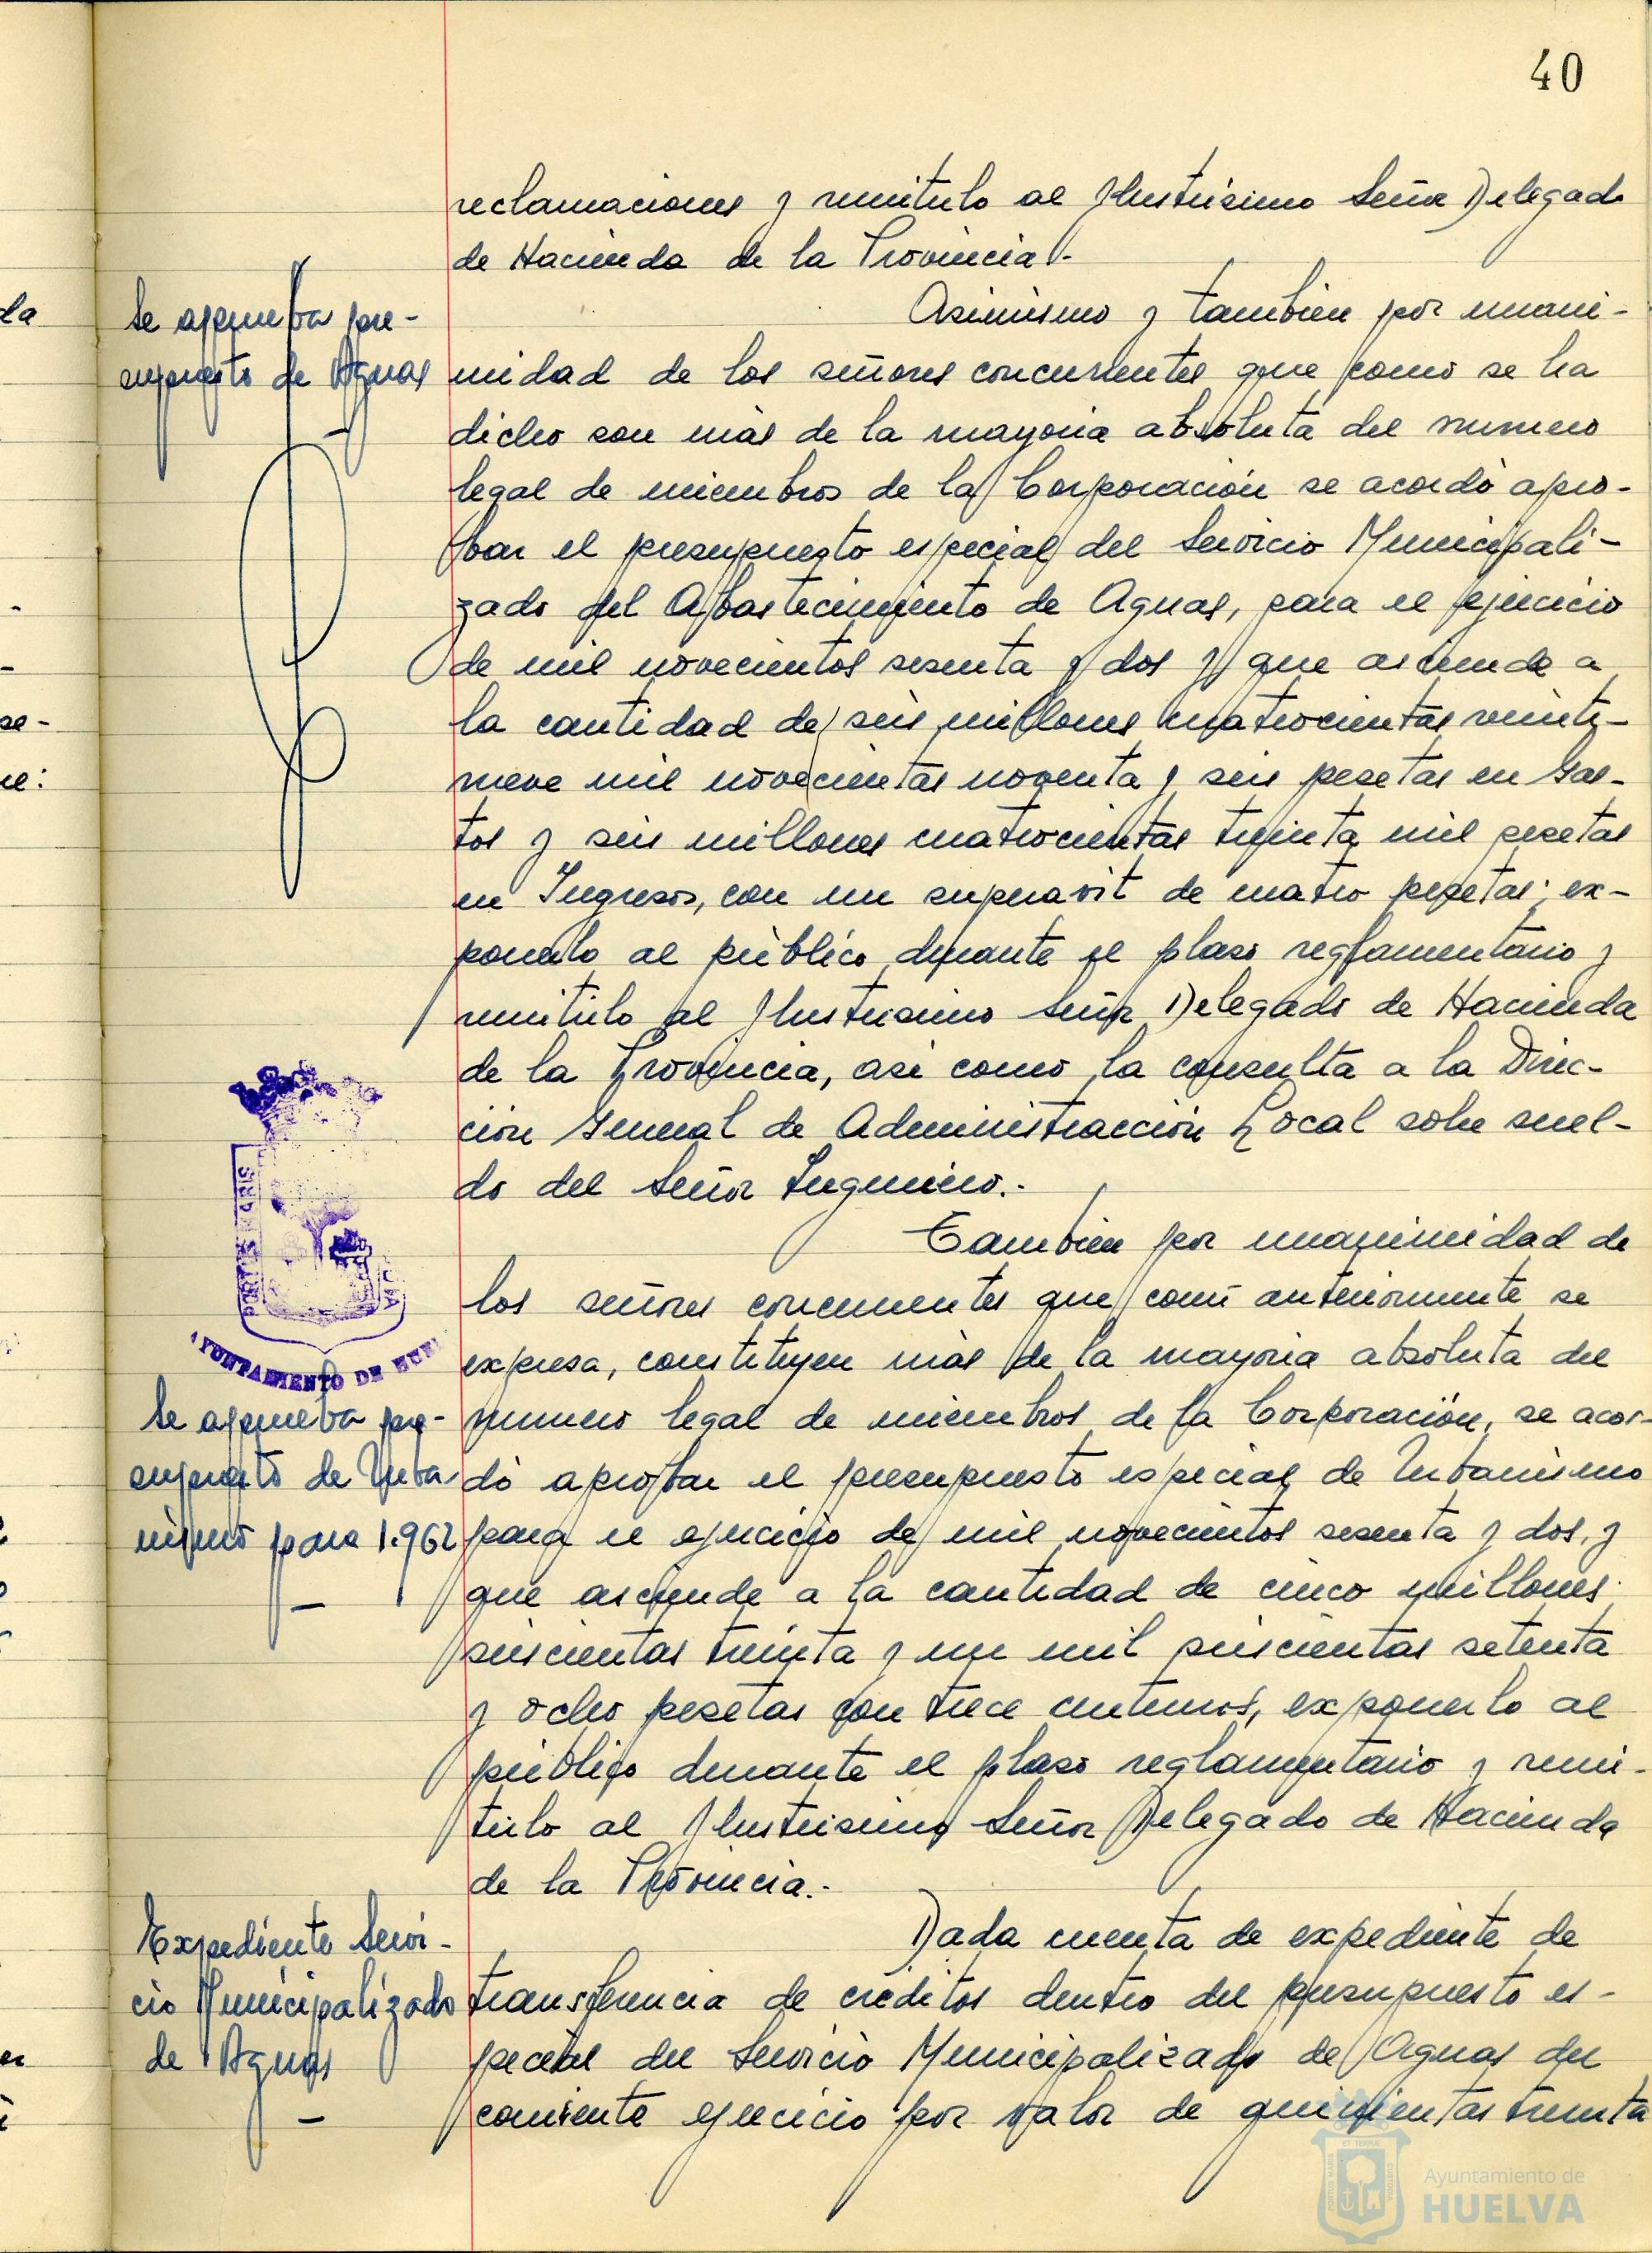 40
reclamaciones y remitirlo al Ilustrísimo Señor Delegado
de Hacienda de la Provincia.-
Se aprueba pre-
supuesto de Aguas
Asimismo y también por unani-
midad de los señores concurrentes que como se ha
dicho son más de la mayoria absoluta del numero
legal de miembros de la Corporación se acordó apro-
bar el presupuesto especial del Servicio Municipali-
zado del Abastecimiento de Aguas, para el ejercicio
de mil novecientos sesenta y dos y que asciende a
la cantidad de seis millones cuatrocientas veinti-
nueve mil novecientas noventa y seis pesetas en Gas-
tos y seis millones cuatrocientas treinta mil pesetas
en Ingresos, con un superavit de cuatro pesetas; ex-
ponerlo al público durante el plazo reglamentario y
remitirlo al Ilustrisimo Señor Delegado de Hacienda
de la Provincia, asi como la consulta a la Direc-
ción General de Administracción Local sobre suel-
do del Señor Ingeniero.-
También por unanimidad de
los señores concurrentes que como anteriormente se
expresa, constituyen más de la mayoria absoluta del
numero legal de miembros de la Corporación, se acor-
dó aprobar el presupuesto especial de Urbanismo
para el ejercicio de mil novecientos sesenta y dos, y
que asciende a la cantidad de cinco millones
seiscientas treinta y un mil seiscientas setenta
y ocho pesetas con trece centimos, exponerlo al
público durante el plazo reglamentario y remi-
tirlo al Ilustrisimo Señor Delegado de Hacienda
de la Provincia.-
AYUNTAMIENTO DE HUEL
Se aprueba pre-
supuesto de Urba-
nismo para 1.962
Expediente Servi-
cio Municipalizado
de Aguas
Dada cuenta de expediente de
transferencia de créditos dentro del presupuesto es-
pecial del Servicio Municipalizado de Aguas del
corriente ejercicio por valor de quinientas treinta
Ayuntamiento de
HUELVA